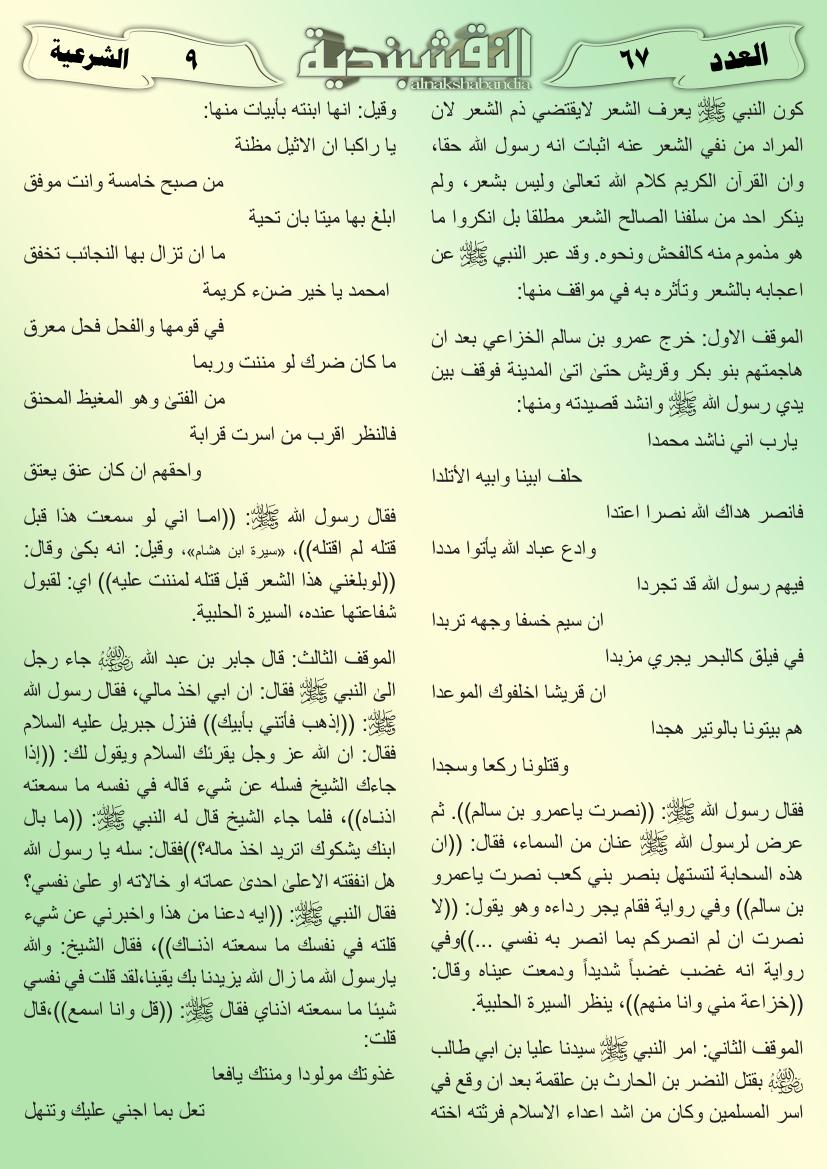 العدد
٦٧
النقشبندية
alnakshabandia
٩
الشرعية
كون النبي ﷺ يعرف الشعر لايقتضي ذم الشعر لان
المراد من نفي الشعر عنه اثبات انه رسول الله حقا،
وان القرآن الكريم كلام الله تعالىٰ وليس بشعر، ولم
ينكر احد من سلفنا الصالح الشعر مطلقا بل انكروا ما
هو مذموم منه كالفحش ونحوه. وقد عبر النبي ﷺ عن
اعجابه بالشعر وتأثره به في مواقف منها:
الموقف الاول: خرج عمرو بن سالم الخزاعي بعد ان
هاجمتهم بنو بكر وقريش حتىٰ اتىٰ المدينة فوقف بين
يدي رسول الله ﷺ وانشد قصيدته ومنها:
يارب اني ناشد محمدا
حلف ابينا وابيه الأتلدا
فانصر هداك الله نصرا اعتدا
وادع عباد الله يأتوا مددا
فيهم رسول الله قد تجردا
ان سيم خسفا وجهه تربدا
في فيلق كالبحر يجري مزبدا
ان قريشا اخلفوك الموعدا
هم بيتونا بالوتير هجدا
وقتلونا ركعا وسجدا
فقال رسول الله ﷺ: ((نصرت ياعمرو بن سالم)). ثم
عرض لرسول الله ﷺ عنان من السماء، فقال: ((ان
هذه السحابة لتستهل بنصر بني كعب نصرت ياعمرو
بن سالم)) وفي رواية فقام يجر رداءه وهو يقول: ((لا
نصرت ان لم انصركم بما انصر به نفسي ...))وفي
رواية انه غضب غضباً شديداً ودمعت عيناه وقال:
((خزاعة مني وانا منهم))، ينظر السيرة الحلبية.
الموقف الثاني: امر النبي ﷺ سيدنا عليا بن ابي طالب
رضي الله عنه بقتل النضر بن الحارث بن علقمة بعد ان وقع في
اسر المسلمين وكان من اشد اعداء الاسلام فرثته اخته
وقيل: انها ابنته بأبيات منها:
يا راكبا ان الاثيل مظنة
من صبح خامسة وانت موفق
ابلغ بها ميتا بان تحية
ما ان تزال بها النجائب تخفق
امحمد يا خير ضنء كريمة
في قومها والفحل فحل معرق
ما كان ضرك لو مننت وربما
من الفتىٰ وهو المغيظ المحنق
فالنظر اقرب من اسرت قرابة
واحقهم ان كان عنق يعتق
فقال رسول الله ﷺ: ((امـا اني لو سمعت هذا قبل
قتله لم اقتله))، «سيرة ابن هشام»، وقيل: انه بكىٰ وقال:
((لوبلغني هذا الشعر قبل قتله لمننت عليه)) اي: لقبول
شفاعتها عنده، السيرة الحلبية.
الموقف الثالث: قال جابر بن عبد الله رضي الله عنه جاء رجل
الىٰ النبي ﷺ فقال: ان ابي اخذ مالي، فقال رسول الله
ﷺ: ((إذهب فأتني بأبيك)) فنزل جبريل عليه السلام
فقال: ان الله عز وجل يقرئك السلام ويقول لك: ((إذا
جاءك الشيخ فسله عن شيء قاله في نفسه ما سمعته
اذنـاه))، فلما جاء الشيخ قال له النبي ﷺ: ((ما بال
ابنك يشكوك اتريد اخذ ماله؟))فقال: سله يا رسول الله
هل انفقته الاعلىٰ احدىٰ عماته او خالاته او علىٰ نفسي؟
فقال النبي ﷺ: ((ايه دعنا من هذا واخبرني عن شيء
قلته في نفسك ما سمعته اذنـاك))، فقال الشيخ: والله
يارسول الله ما زال الله يزيدنا بك يقينا،لقد قلت في نفسي
شيئا ما سمعته اذناي فقال ﷺ: ((قل وانا اسمع))،قال
قلت:
غذوتك مولودا ومنتك يافعا
تعل بما اجني عليك وتنهل